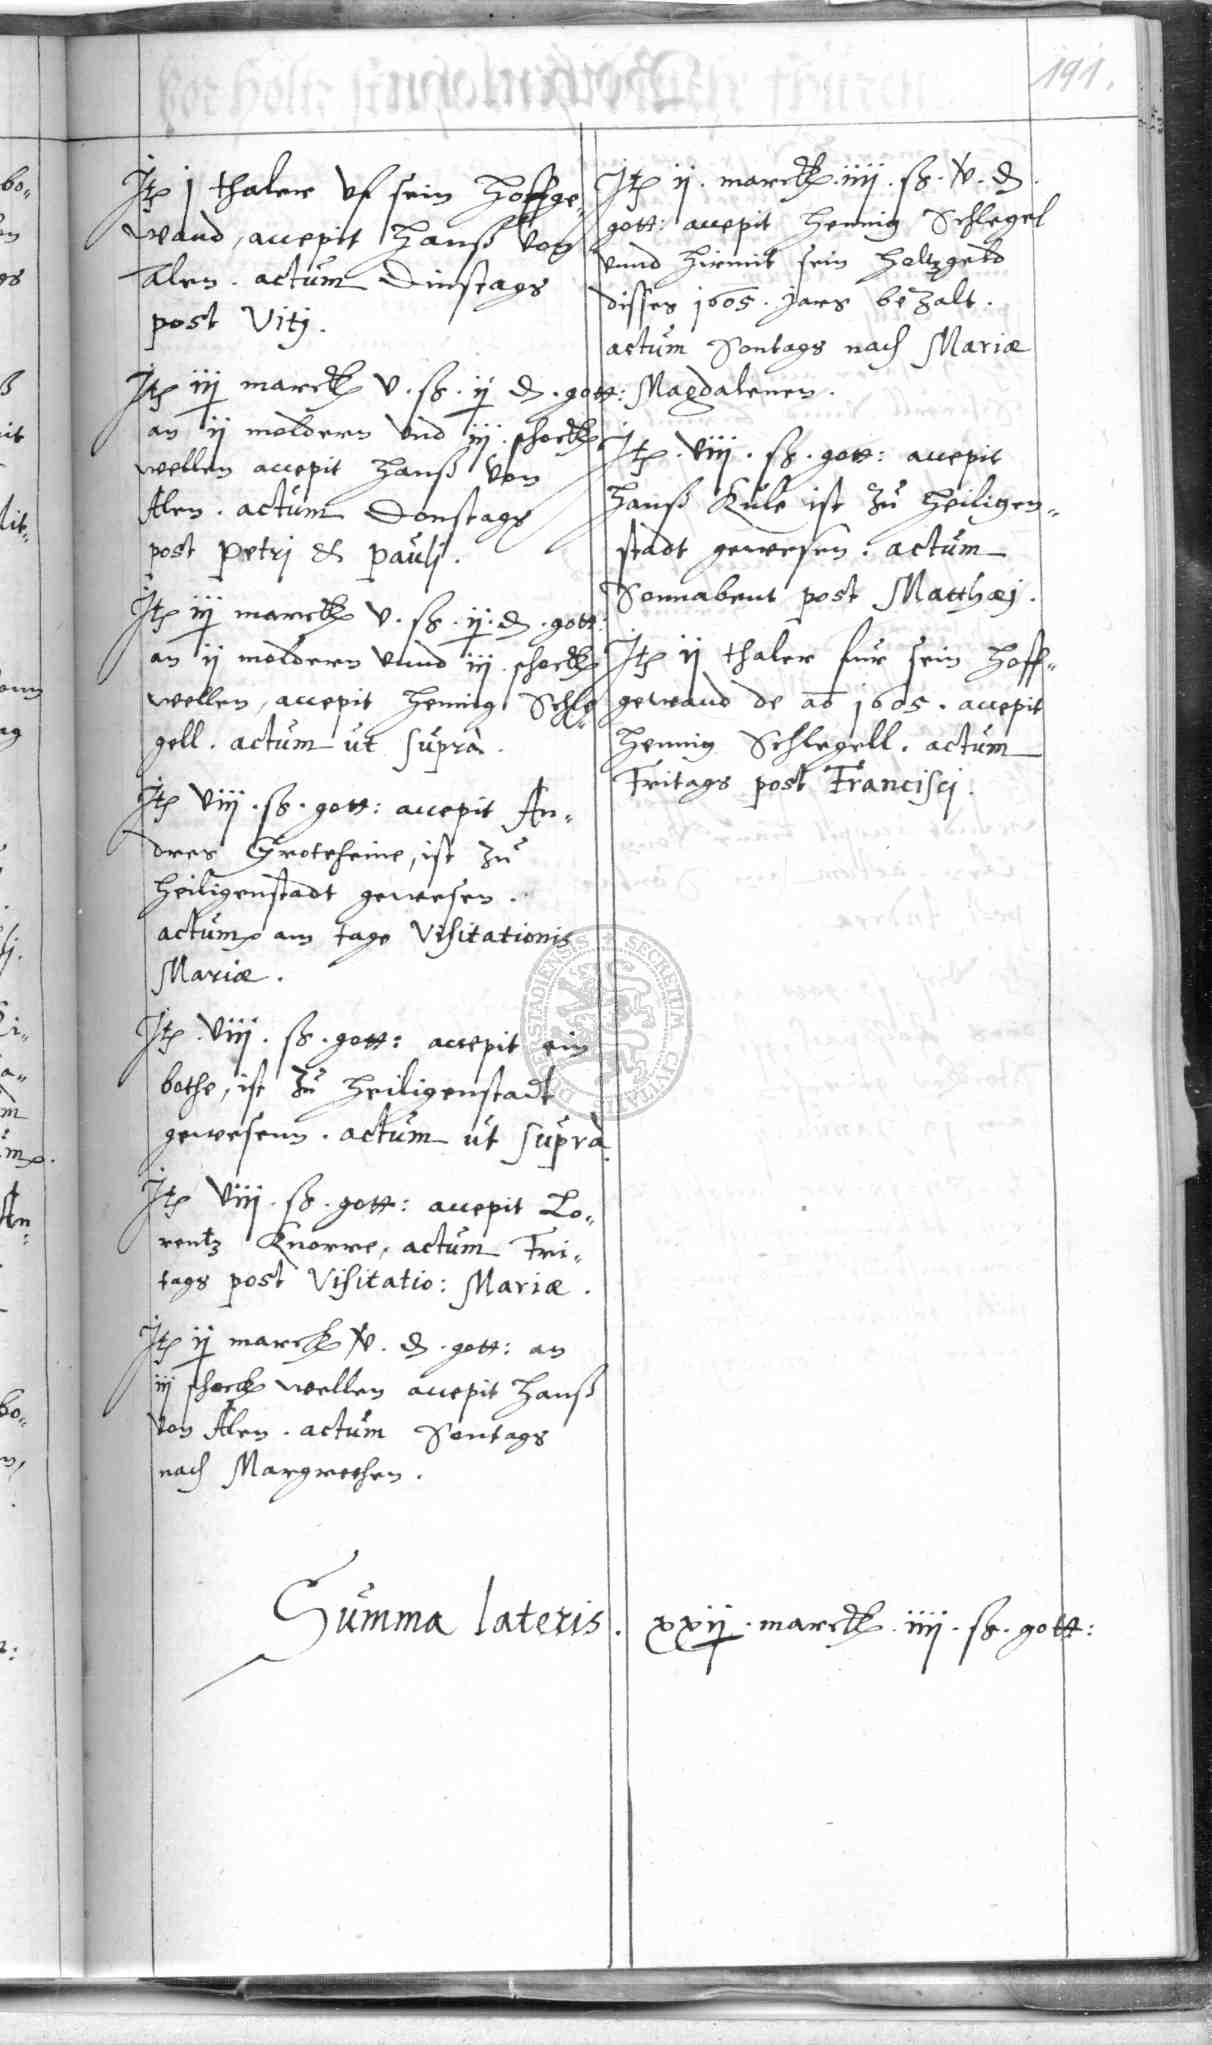 191.
Itp j thaler uf sein Hoffge-
wand, accepit Hanß von
Alen. actum Dinstags
post Vitj.
Itp iij marck v. ß. ij d. gott:
an ij moldern und iij schock
wellen accepit Hanß von
Alen. actum Donstags
post Petrj & Paulj.
Itp iij marck v. ß. ij. d. gott:
an ij moldern unnd iij. schock
wellen, accepit Hennig Schle-
gell. actum ut suprà.
Itp viij. ß. gott: accepit An-
dres Groteheine, ist zu
Heiligenstadt gewesen.
actum am tage Visitationis
Mariæ.
Itp. viij. ß. gott: accepit ein
bothe, ist zu Heiligenstadt
gewesenn. actum ut suprà
Itp viij. ß. gott: accepit Lo-
rentz Knorre, actum Fri-
tags post Visitatio: Mariæ.
Itp ij marck v. d. gott: an
iij schock wellen accepit Hanß
von Alen. actum Sontags
nach Margrethen.
Itp ij. marck. iiij. ß. v. d.
gott: accepit Hennig Schlegel
unnd hirmit sein holtzgeld
disses 1605. jars bezalt.
actum Sontags nach Mariæ
Magdalenen.
Itp. viij. ß. gott: accepit
Hanß Kule ist zu Heiligen-
stadt gewesen. actum
Sonnabent post Matthæj.
Itp ij thaler fur sein Hoff-
gewand de ao 1605. accepit
Hennig Schlegell. actum
Fritags post Francisci.
Summa lateris. xxij. marck. iiij. ß. gott:
SECRETUM CIVITATIS DUDERSTADIENSIS